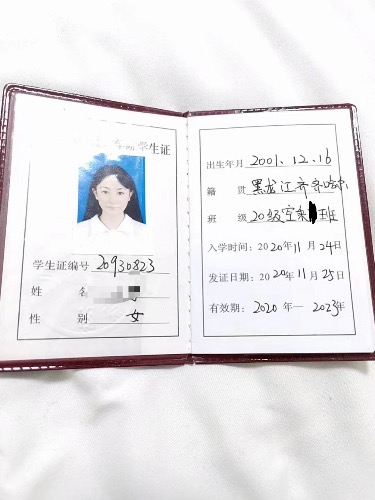 学生证
学生证编号 20930823
姓 名
性 别 女
出生年月 2001.12.16
籍 贯 黑龙江齐齐哈尔
班 级 20级空乘 班
入学时间:2020年11月24日
发证日期:2020年11月25日
有效期:2020年—2023年